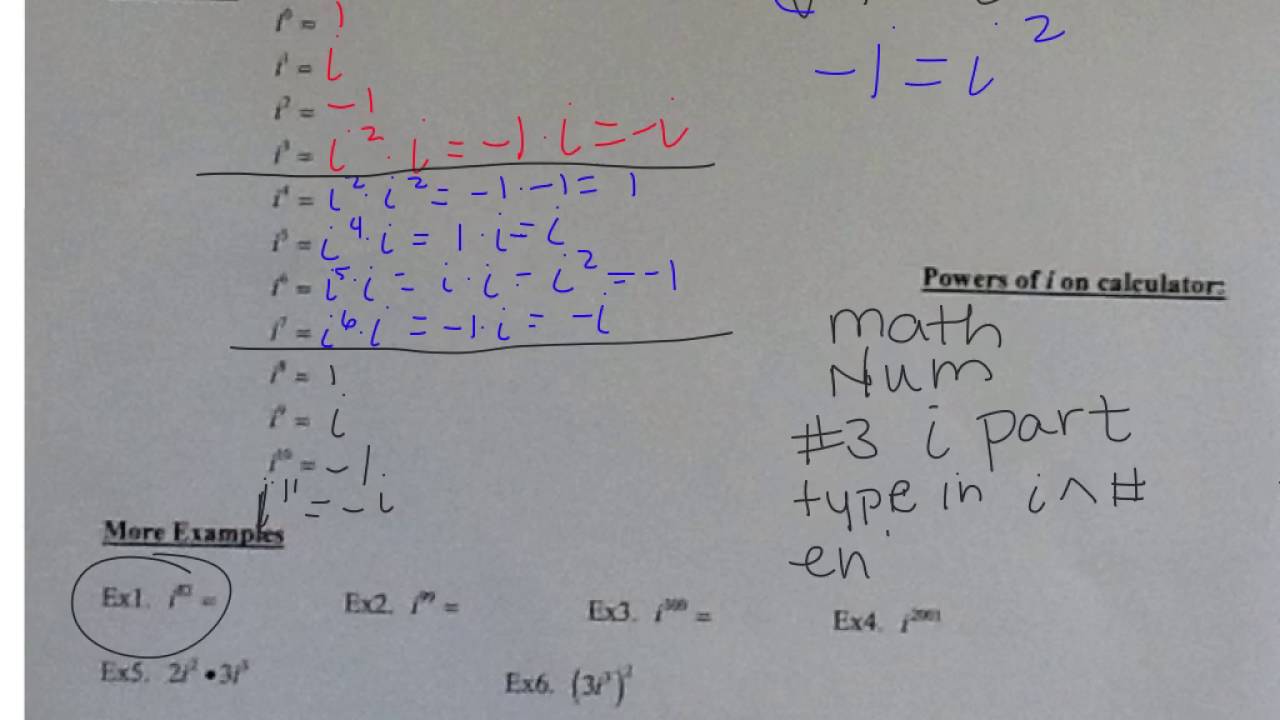 i⁰ = 1
i¹ = i
i² = -1
i³ = i² · i = -1 · i = -i
-1 = i²
i⁴ = i² · i² = -1 · -1 = 1
i⁵ = i⁴ · i = 1 · i = i
i⁶ = i⁵ · i = i · i = i² = -1
i⁷ = i⁶ · i = -1 · i = -i
i⁸ = 1
i⁹ = i
i¹⁰ = -1
i¹¹ = -i
Powers of i on calculator:
math
Num
#3 i part
type in i ^ #
en
More Examples
Ex1. i =
Ex2. i⁹⁹ =
Ex3. i =
Ex4. i²⁰⁰¹
Ex5. 2i² • 3i³
Ex6. (3i³)²